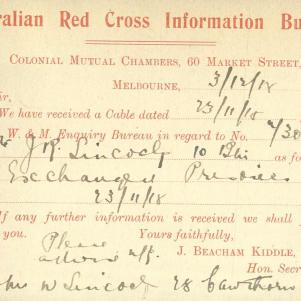 ralian Red Cross Information Bu
COLONIAL MUTUAL CHAMBERS, 60 MARKET STREET,
MELBOURNE, 3/12/18
ir,
We have received a Cable dated 23/11/18
W. & M. Enquiry Bureau in regard to No.
J. R. Lincock 10 Bn as fo
Exchanged
23/11/18
If any further information is received we shall
you. Yours faithfully,
Please J. BEACHAM KIDDLE,
advise Hon. Secr
W Lincock 28 Cawthorn